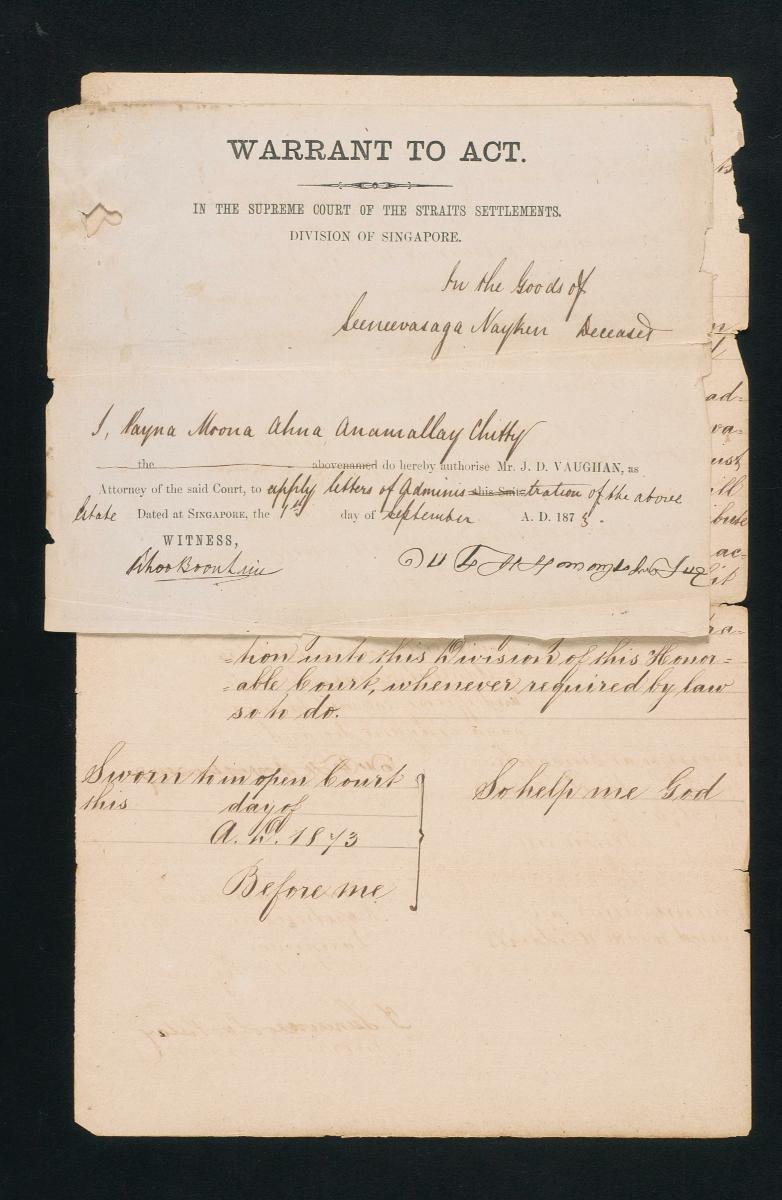 WARRANT TO ACT.
IN THE SUPREME COURT OF THE STRAITS SETTLEMENTS.
DIVISION OF SINGAPORE.
In the Goods of
Seeneevasaga Nayken Deceased
I, Vayna Moona Ahna Anamallay Chitty
the abovenamed do hereby authorise Mr. J. D. VAUGHAN, as
Attorney of the said Court, to apply letters of Adminis this Suit tration of the above
Estate Dated at SINGAPORE, the 1st day of September A. D. 1873.
WITNESS,
ad=
va=
ust
ill
bute
ac=
it
ra=
=tion unto this Division of this Honor=
=able Court, whenever required by law
so to do.
Sworn to in open Court
this day of
A. D. 1873
Before me
So help me God